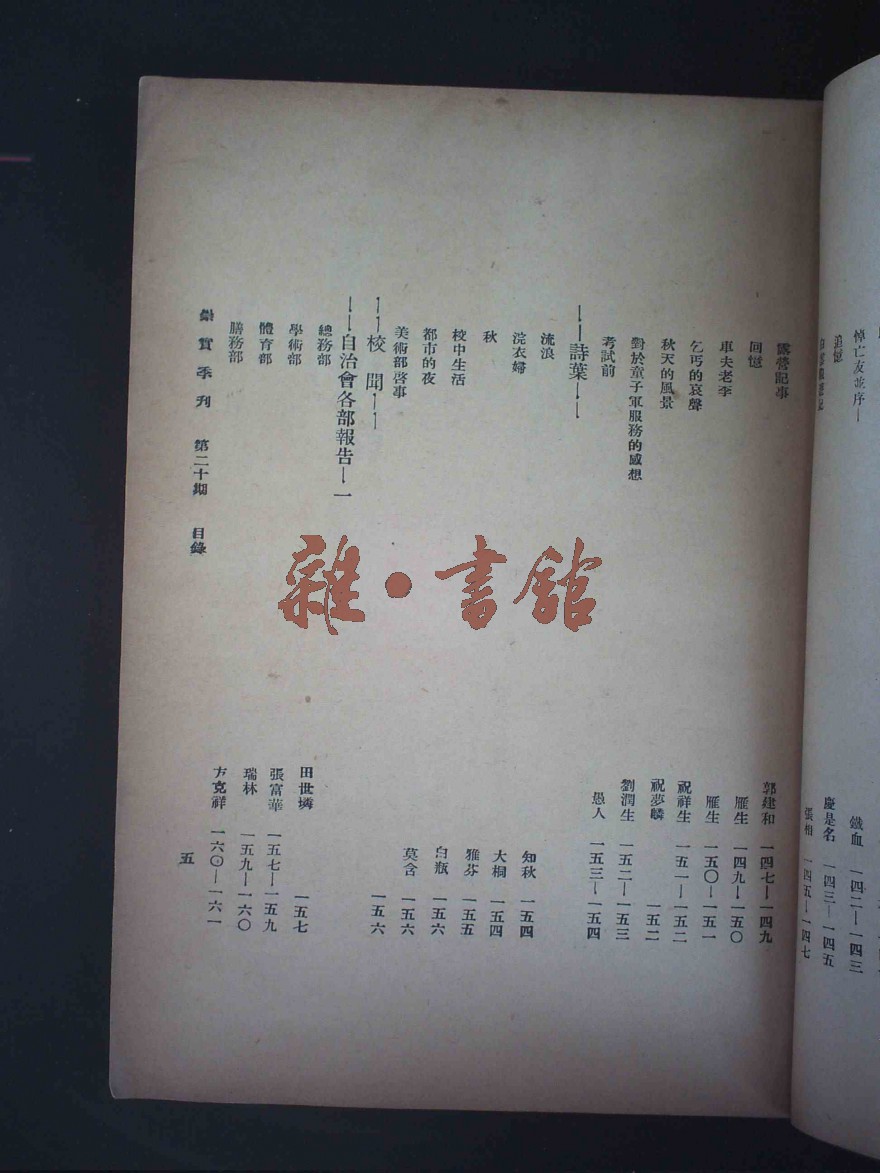 悼亡友並序
鐵血 一四二—一四三
追憶
慶是名 一四三—一四五
張相 一四五—一四七
露營記事 郭建和 一四七—一四九
回憶 雁生 一四九—一五〇
車夫老李 雁生 一五〇—一五一
乞丐的哀聲 祝祥生 一五一—一五二
秋天的風景 祝夢麟 一五二
對於童子軍服務的感想 劉潤生 一五二—一五三
考試前 愚人 一五三—一五四
——詩葉——
流浪 知秋 一五四
浣衣婦 大桐 一五四
秋 雅芬 一五五
校中生活 白瓶 一五六
都市的夜 莫含 一五六
美術部啓事 一五六
——校聞——
——自治會各部報告—一
總務部 田世㷠 一五七
學術部 張富華 一五七—一五九
體育部 瑞林 一五九—一六〇
膳務部 方克祥 一六〇—一六一
崇實季刊 第二十期 目錄 五
雜·書館